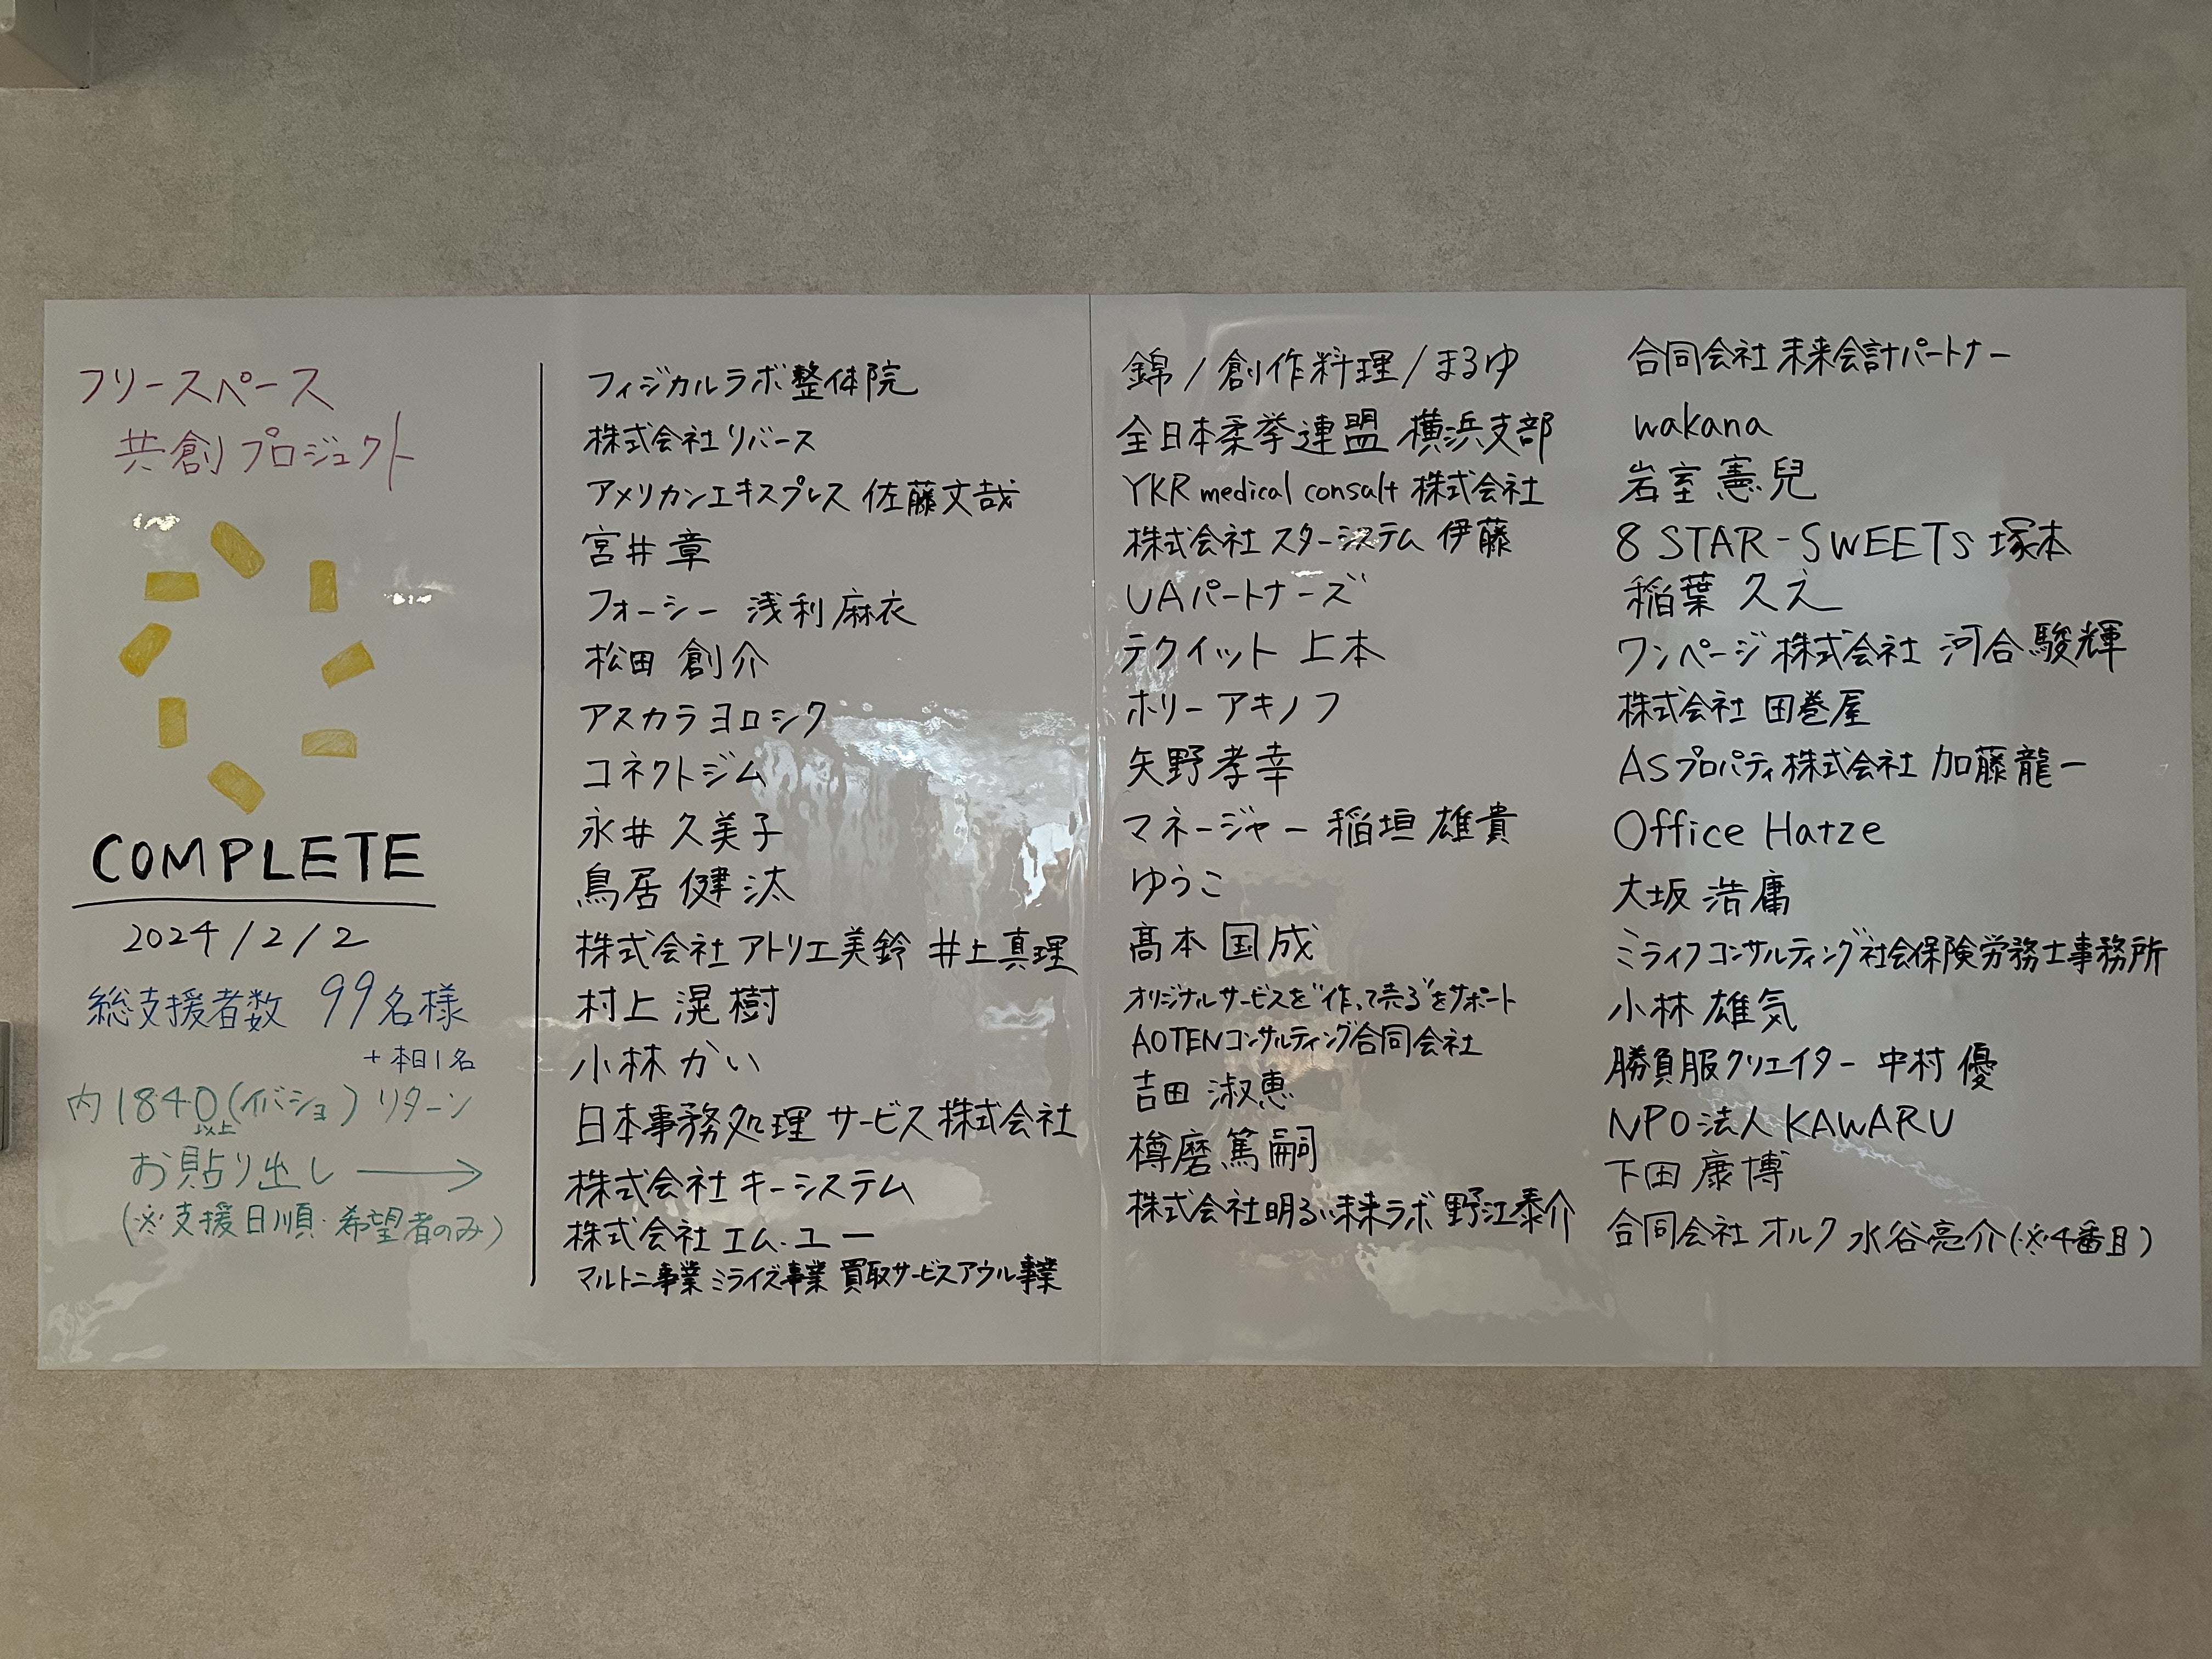 フリースペース
共創プロジェクト
COMPLETE
2024/2/2
総支援者数 99名様
+本日1名
内1840(イバショ)リターン
以上
お貼り出し →
(※支援日順・希望者のみ)
フィジカルラボ整体院
株式会社リバース
アメリカンエキスプレス 佐藤文哉
宮井章
フォーシー 浅利麻衣
松田 創介
アスカラヨロシク
コネクトジム
永井 久美子
鳥居 健汰
株式会社 アトリエ美鈴 井上真理
村上 滉樹
小林 かい
日本事務処理サービス株式会社
株式会社 キーシステム
株式会社 エム・ユー
マルトニ事業 ミライズ事業 買取サービスアウル事業
錦/創作料理/まるゆ
全日本柔拳連盟 横浜支部
YKR medical consalt 株式会社
株式会社 スターシステム 伊藤
UAパートナーズ
テクイット 上本
ホリーアキノフ
矢野孝幸
マネージャー 稲垣 雄貴
ゆうこ
髙本 国成
オリジナルサービスを"作って売る"をサポート
AOTENコンサルティング合同会社
吉田 淑恵
樽磨 篤嗣
株式会社明るい未来ラボ 野江泰介
合同会社 未来会計パートナー
wakana
岩室 憲兒
8 STAR-SWEETs 塚本
稲葉 久え
ワンページ株式会社 河合駿輝
株式会社 田巻屋
ASプロパティ株式会社 加藤龍一
Office Hatze
大坂 浩庸
ミライフコンサルティング社会保険労務士事務所
小林 雄気
勝負服クリエイター 中村 優
NPO法人 KAWARU
下田 康博
合同会社 オルク 水谷亮介(※4番目)